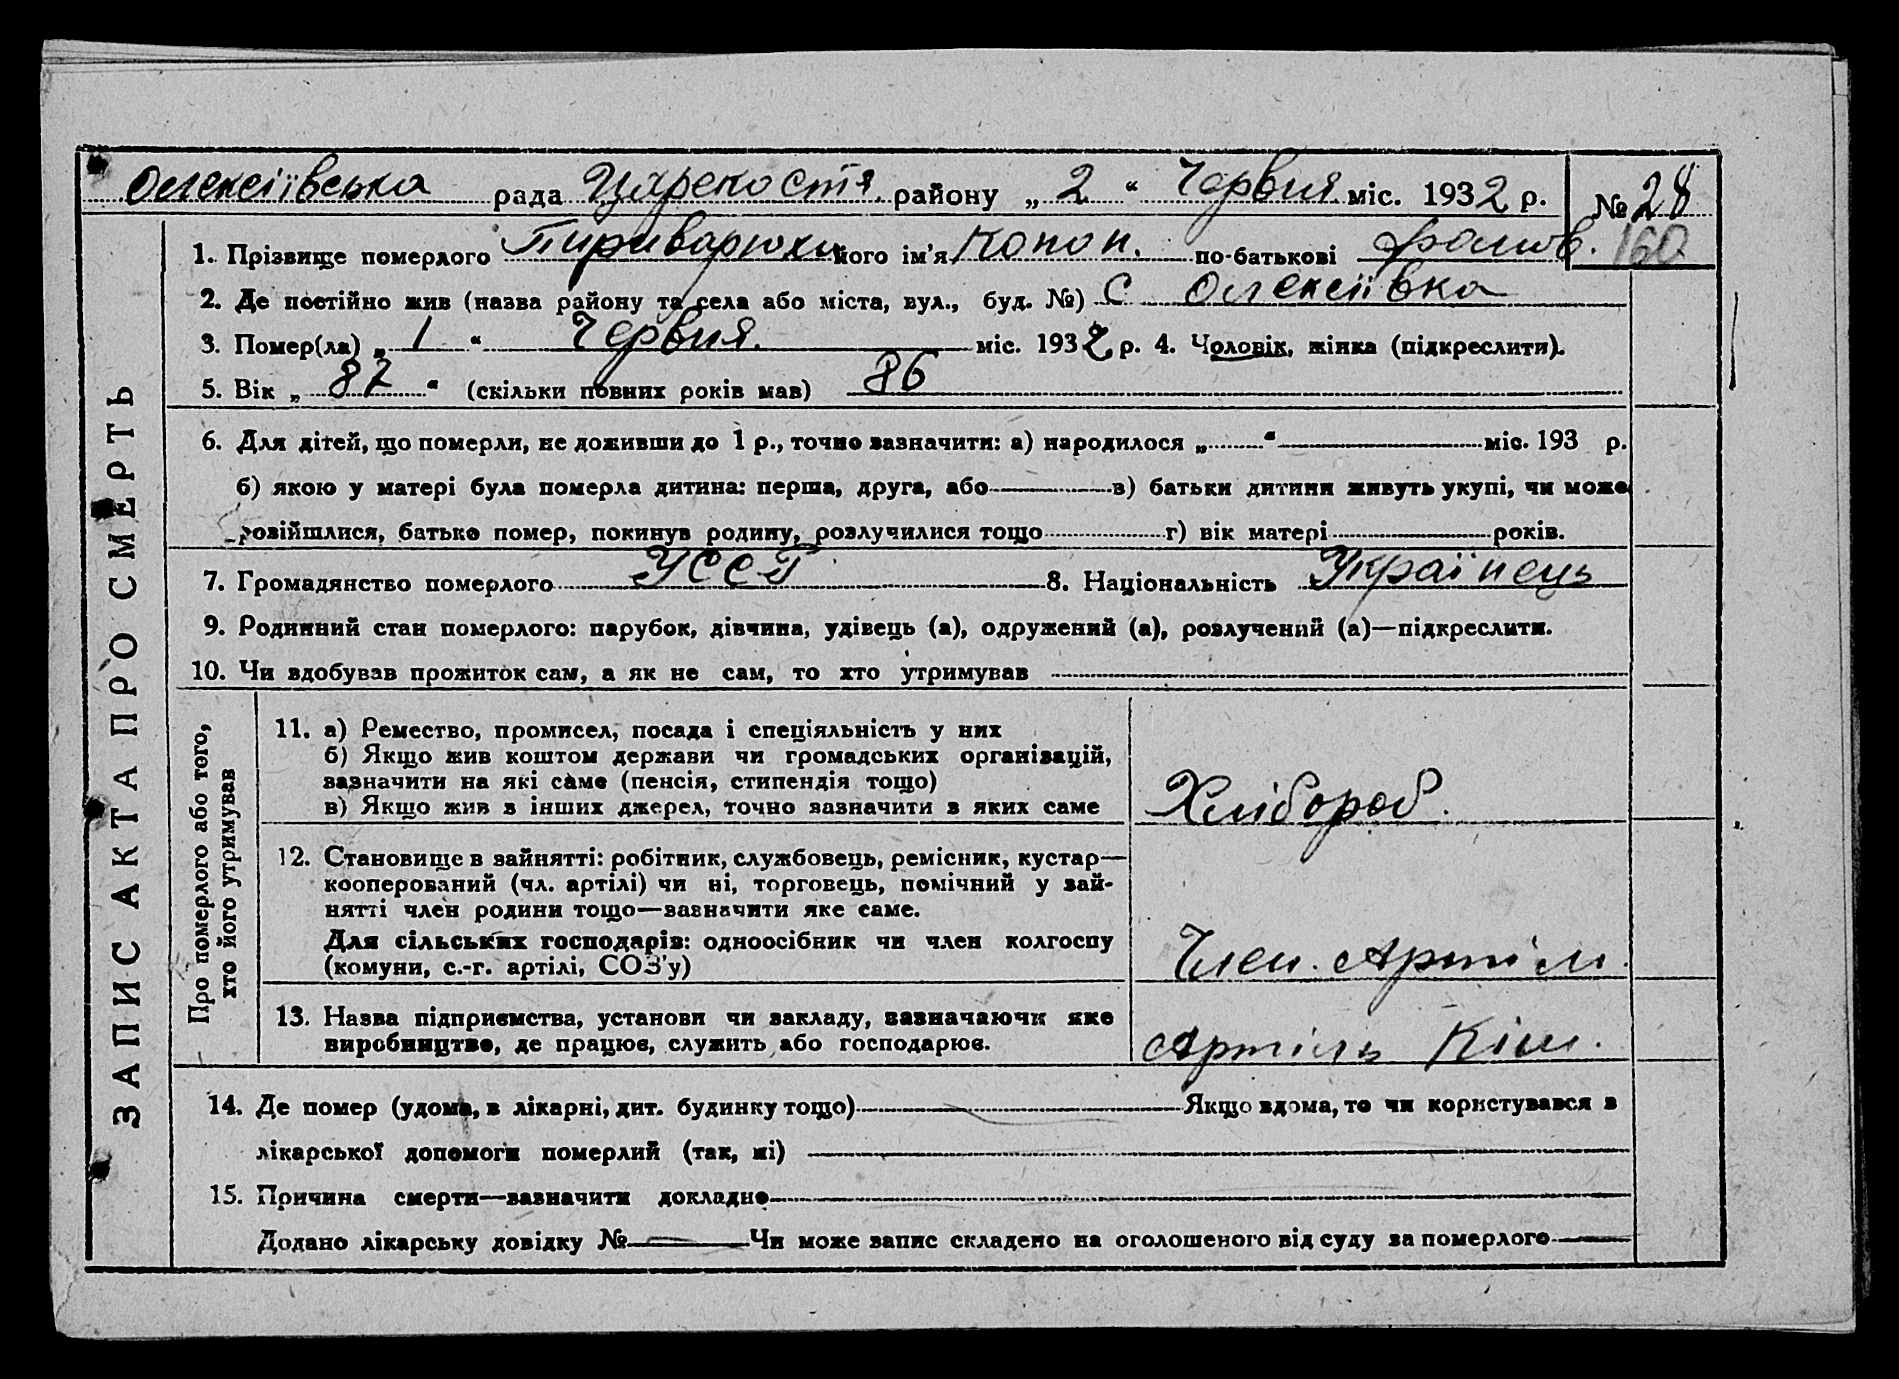 Олексіївська рада Царекостя. району „ 2 “ Червня міс. 1932 р. № 28
1. Прізвище померлого його ім'я Конон. по-батькові 160
2. Де постійно жив (назва району та села або міста, вул., буд. №) С Олексіївка
3. Помер(ла) „ 1 “ Червня. міс. 1932 р. 4. Чоловік, жінка (підкреслити).
5. Вік „ 87 “ (скільки повних років мав) 86
6. Для дітей, що померли, не доживши до 1 р., точно зазначити: а) народилося „ “ міс. 193 р.
б) якою у матері була померла дитина: перша, друга, або в) батьки дитини живуть укупі, чи може
розійшлися, батько помер, покинув родину, розлучилися тощо г) вік матері років.
7. Громадянство померлого УССР 8. Національність Українець
9. Родинний стан померлого: парубок, дівчина, удівець (а), одружений (а), розлучений (а)—підкреслити.
10. Чи здобував прожиток сам, а як не сам, то хто утримував
ЗАПИС АКТА ПРО СМЕРТЬ
Про померлого або того,
хто його утримував
11. а) Ремество, промисел, посада і спеціяльність у них
б) Якщо жив коштом держави чи громадських організацій,
зазначити на які саме (пенсія, стипендія тощо)
в) Якщо жив з інших джерел, точно зазначити з яких саме
Хлібороб.
12. Становище в зайнятті: робітник, службовець, ремісник, кустар—
кооперований (чл. артілі) чи ні, торговець, помічний у зай-
нятті член родини тощо—зазначити яке саме.
Для сільських господарів: одноосібник чи член колгоспу
(комуни, с.-г. артілі, СОЗ'у)
Член. Артіл.
13. Назва підприємства, установи чи закладу, зазначаючи яке
виробництво, де працює, служить або господарює.
Артіль Кім.
14. Де помер (удома, в лікарні, дит. будинку тощо) Якщо вдома, то чи користувався з
лікарської допомоги померлий (так, ні)
15. Причина смерти—зазначити докладно
Додано лікарську довідку № Чи може запис складено на оголошеного від суду за померлого